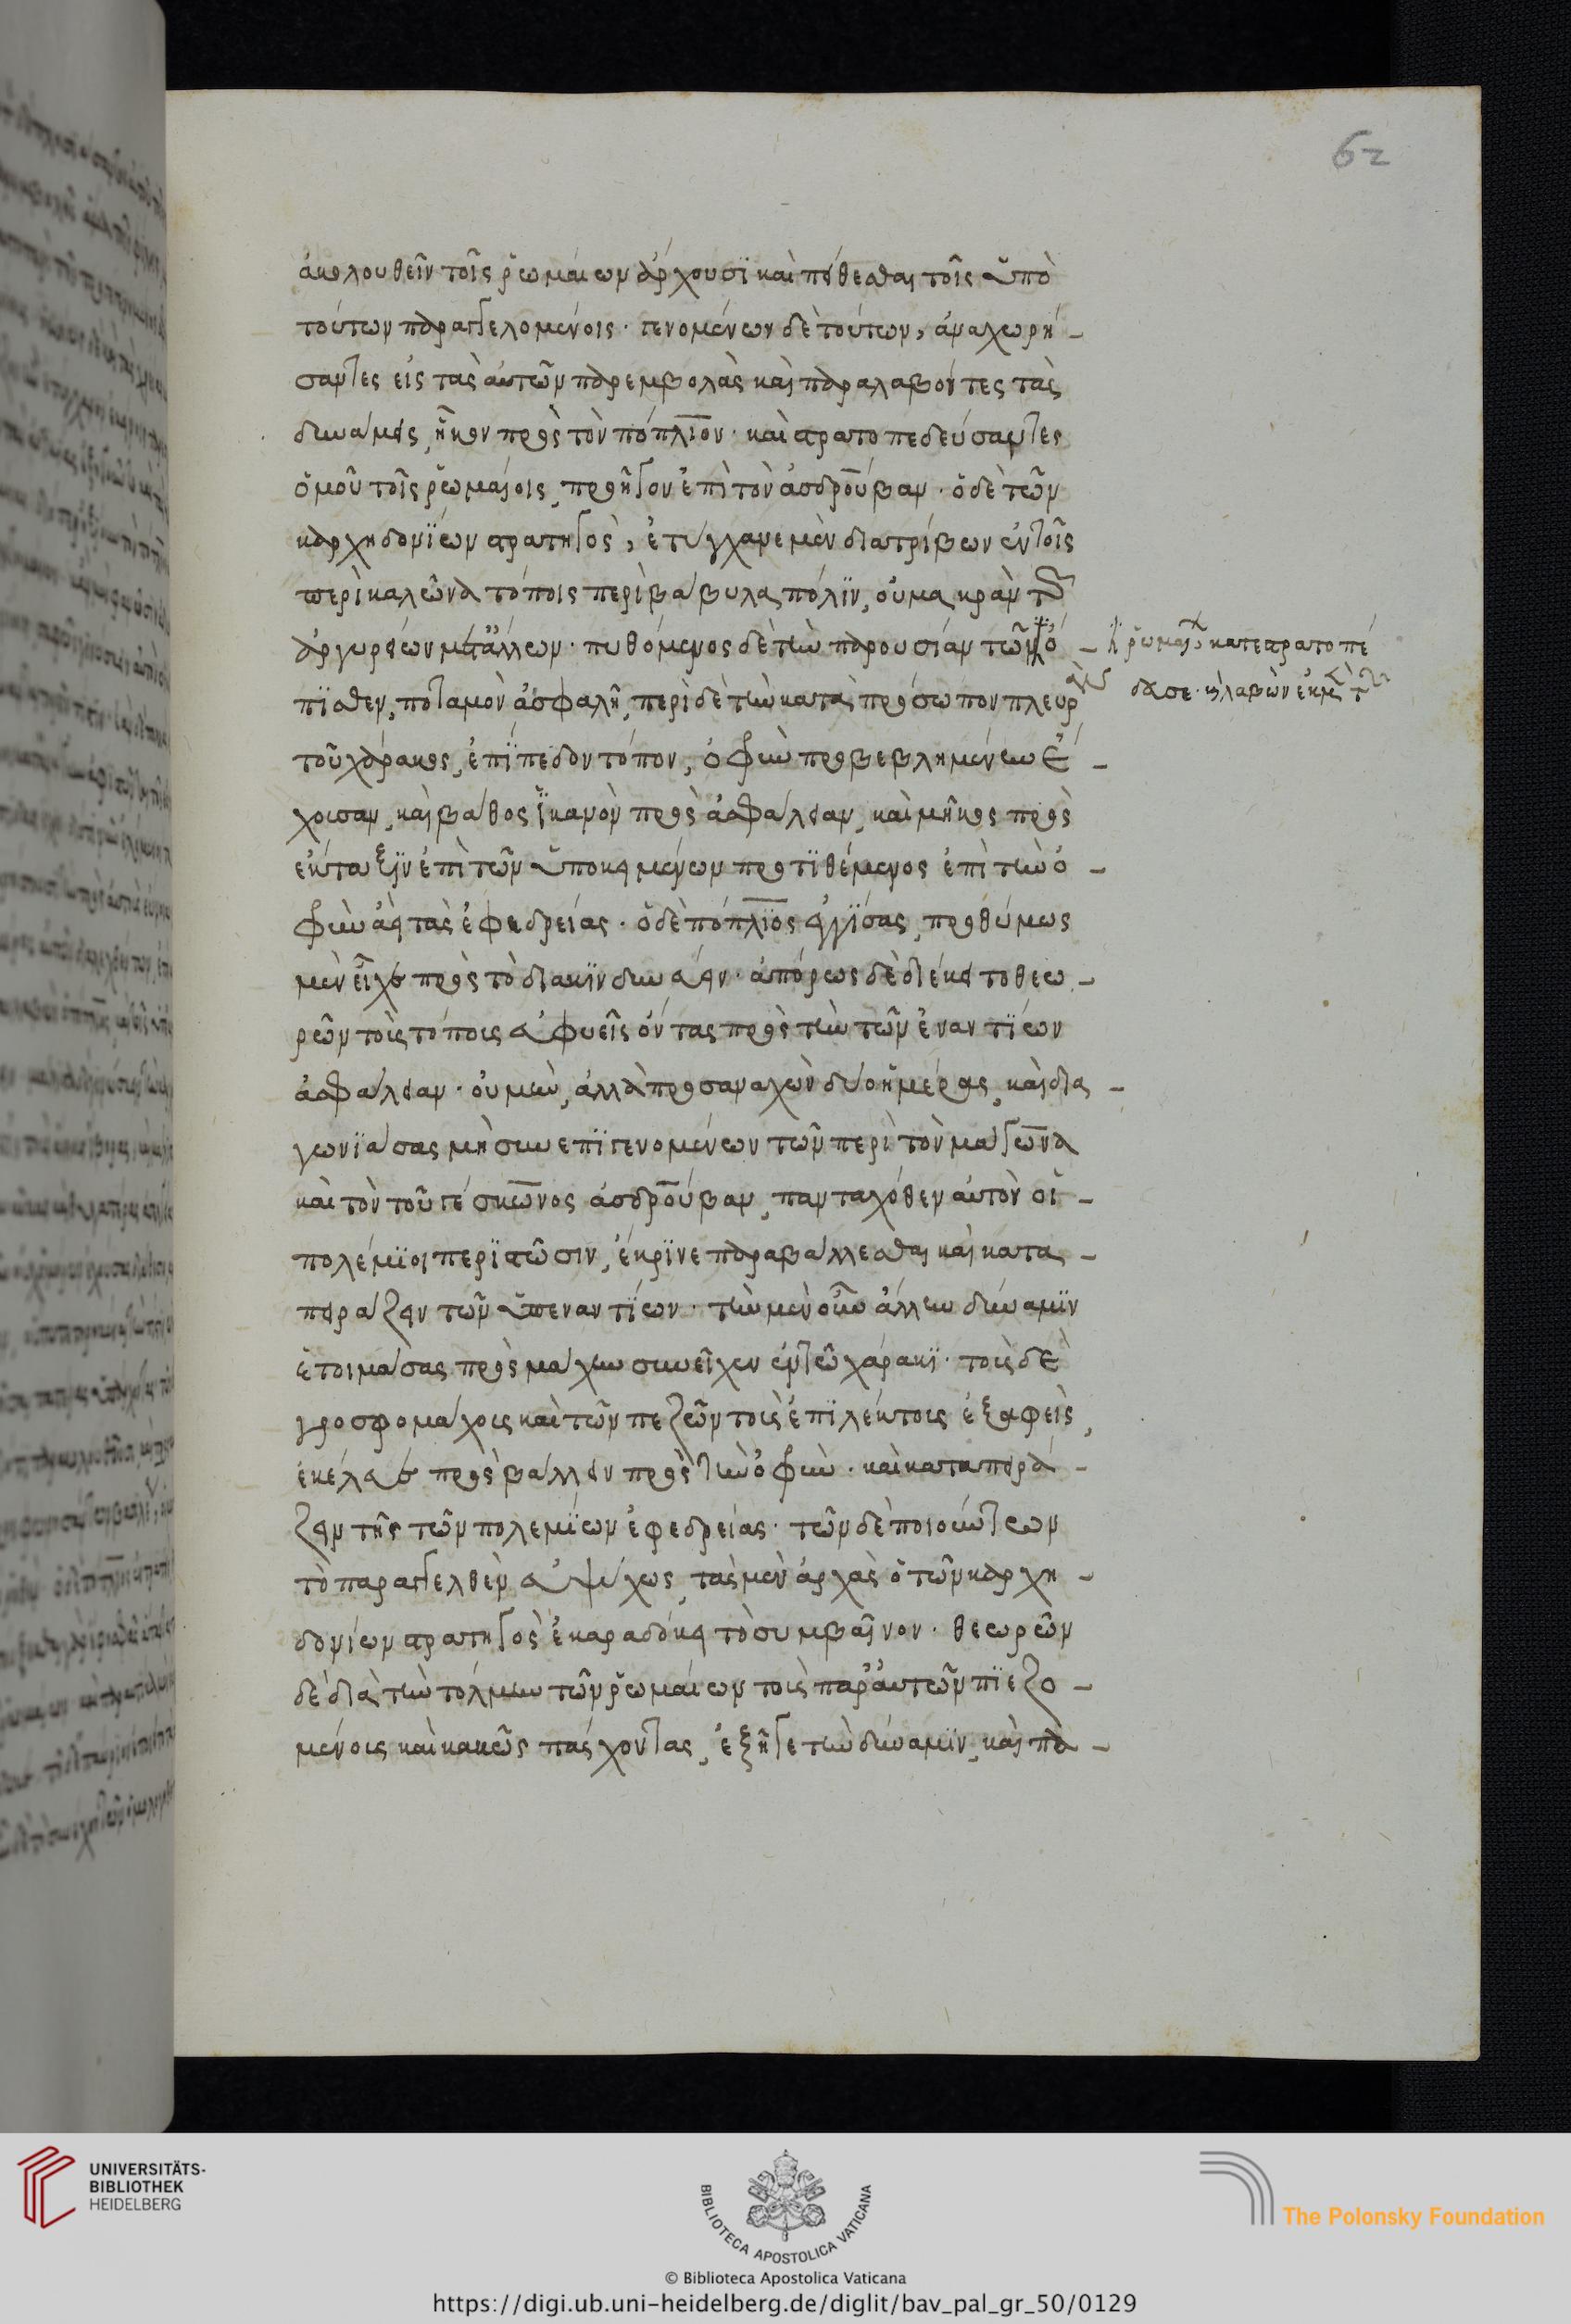 62
ἀκολουθεῖν τοῖς ῥωμαίων ἄρχουσϊ καὶ πείθεσθαι τοῖς ὑπὸ
τούτων παραγγελομένοις· γενομένων δὲ τούτων, ἀναχωρή-
σαντες εἰς τὰς αὐτῶν παρεμβολὰς καὶ παραλαβόντες τὰς
δυνάμεις, ἧκον πρὸς τὸν πόπλϊον· καὶ στρατοπεδεύσαντες
ὁμοῦ τοῖς ῥωμαίοις, προῆγον ἐπὶ τὸν ἀσδρούβαν· ὁ δὲ τῶν
καρχηδονϊων στρατηγὸς, ἐτύγχανε μὲν διατρίβων ἐν τοῖς
περὶ καλῶνα τόποις περὶ βάβυλα πόλϊν, οὐ μακρὰν τῶν
ἀργυρείων μετάλλων· πυθόμενος δὲ τὴν παρουσίαν τῶν ὄ-
ῥωμαίων κατεστρατοπέ
δευσε· καὶ λαβὼν ἐκ μὲν τῶν
πϊσθεν, ποταμὸν ἀσφαλῆ, περὶ δὲ τὴν κατὰ πρόσωπον πλευρὰν
τοῦ χάρακος, ἐπϊπεδον τόπον, ὀφρὺν προβεβλημένην ἔ-
χουσαν, καὶ βάθος ϊκανὸν πρὸς ἀσφάλειαν, καὶ μῆκος πρὸς
ἔκταξϊν ἐπὶ τῶν ὑποκειμένων προτϊθέμενος ἐπὶ τὴν ὀ-
φρὺν ἀεὶ τὰς ἐφεδρείας· ὁ δὲ πόπλϊος ἐγγϊσας, προθύμως
μὲν εἶχε πρὸς τὸ διακϊνδυνεύειν· ἀπόρως δὲ διέκειτο θεω-
ρῶν τοὺς τόπους εὐφυεῖς ὄντας πρὸς τὴν τῶν ἐναντϊων
ἀσφάλειαν· οὐ μὴν, ἀλλὰ προσανασχὼν δύο ἡμέρας, καὶ δια-
γωνϊάσας μὴ συνεπϊγενομένων τῶν περὶ τὸν μάγωνα
καὶ τὸν τοῦ γέσκωνος ἀσδρούβαν, πανταχόθεν αὐτὸν οἱ-
πολέμϊοι περϊστῶσιν, ἔκρϊνε παραβάλλεσθαι καὶ κατα-
πειράζειν τῶν ὑπεναντϊων· τὴν μὲν οὖν ἄλλην δύναμϊν
ἑτοιμάσας πρὸς μάχην συνεῖχεν ἐν τῶ χάρακϊ· τοὺς δὲ
γροσφομάχους καὶ τῶν πεζῶν τοὺς ἐπϊλέκτους ἐξαφεὶς,
ἐκέλευε προσβάλλειν πρὸς τὴν ὀφρὺν· καὶ καταπειρά-
ζειν τῆς τῶν πολεμϊων ἐφεδρείας· τῶν δὲ ποιούντων
τὸ παραγγελθὲν εὐψύχως, τὰς μὲν ἀρχὰς ὁ τῶν καρχη-
δονίων στρατηγὸς ἐκαραδόκει τὸ συμβαῖνον· θεωρῶν
δὲ διὰ τὴν τόλμην τῶν ῥωμαίων τοὺς παρ' αὐτῶν πϊεζο-
μένους καὶ κακῶς πάσχοντας, ἐξῆγε τὴν δύναμϊν, καὶ πα-
UNIVERSITÄTS-
BIBLIOTHEK
HEIDELBERG
BIBLIOTECA APOSTOLICA VATICANA
© Biblioteca Apostolica Vaticana
The Polonsky Foundation
https://digi.ub.uni-heidelberg.de/diglit/bav_pal_gr_50/0129